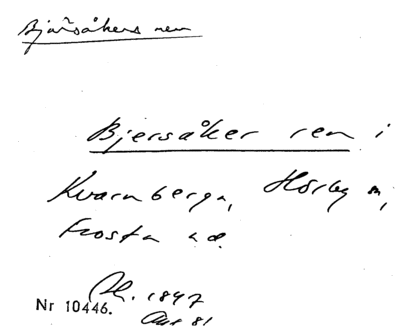 Bjärsåkers ren
Bjersåker ren i
Kvarnberga, Hörby sn,
Frosta hd.
Nr 10446. 1847
81